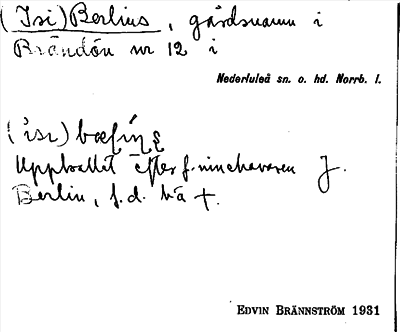 (Isi) Berlins, gårdsnamn i
Brändön nr 12 i
Nederluleå sn. o. hd. Norrb. l.
(isi)
Uppkallat efter f. innehavaren J.
Berlin, f.d. +.
EDVIN BRÄNNSTRÖM 1931